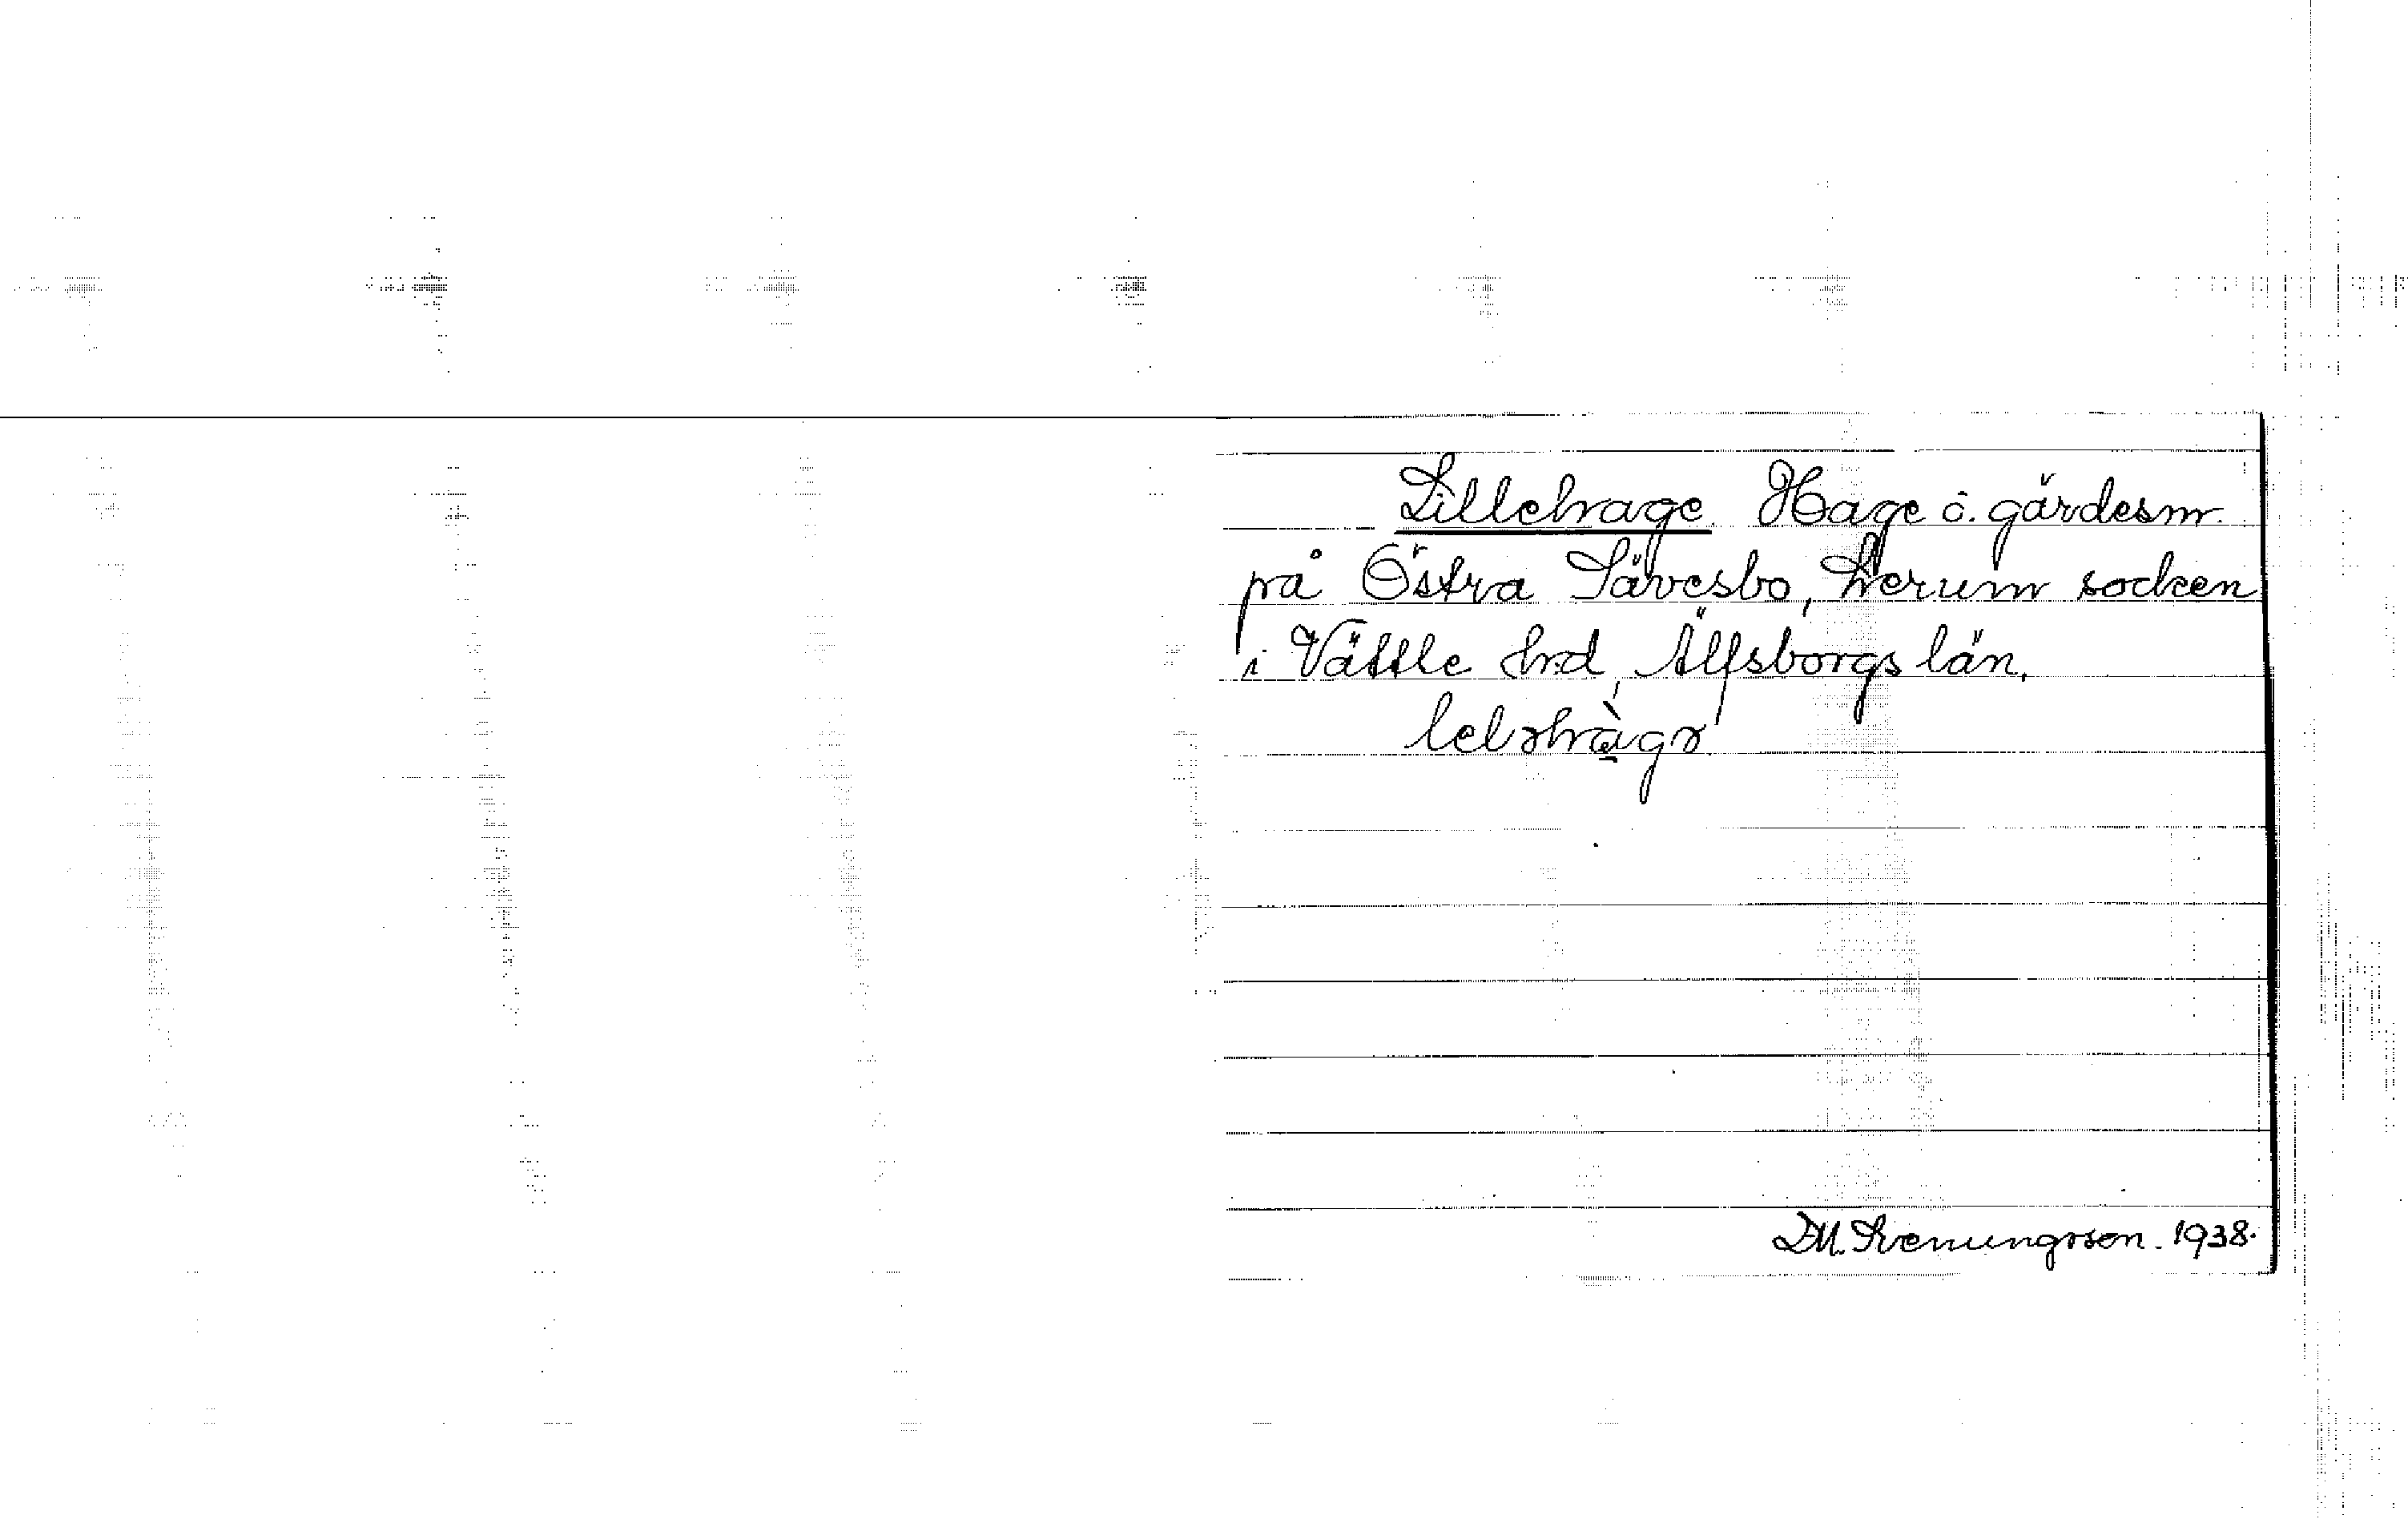 Lillehage. Hage ö. gärdesm.
på Östra Sävesbo, Lerum socken
i Vättle hrd, Älfsborgs län.
D.M. Svenungsson. 1938.